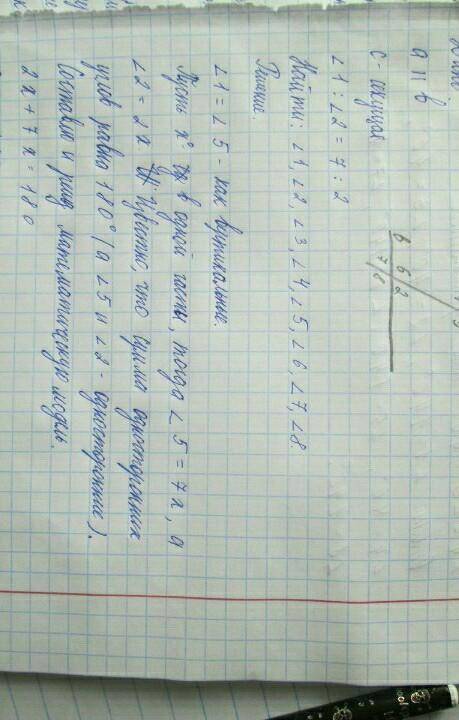 a || b
c - секущая
∠1 : ∠2 = 7 : 2
Найти: ∠1, ∠2, ∠3, ∠4, ∠5, ∠6, ∠7, ∠8.
Решение.
∠1 = ∠5 - как вертикальные.
Пусть x° в одной части, тогда ∠5 = 7x, а
∠2 = 2x Известно, что сумма односторонних
углов равна 180° (а ∠5 и ∠2 - односторонние).
Составлю и решу математическую модель.
2x + 7x = 180
b
6 2
7 8